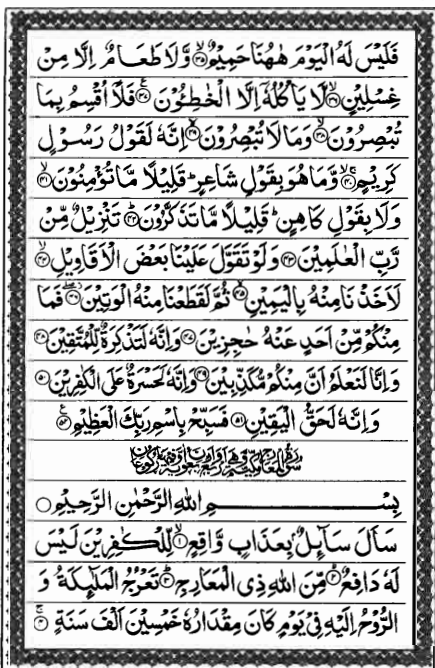 فَلَيْسَ لَهُ الْيَوْمَ هٰهُنَا حَمِيْمٌ ﴿۳۵﴾ وَّلَا طَعَامٌ اِلَّا مِنْ
غِسْلِيْنٍ ﴿۳۶﴾ لَّا يَاْكُلُهٗۤ اِلَّا الْخٰطِـُٔوْنَ ﴿۳۷﴾ فَلَاۤ اُقْسِمُ بِمَا
تُبْصِرُوْنَ ﴿۳۸﴾ وَمَا لَا تُبْصِرُوْنَ ﴿۳۹﴾ اِنَّهٗ لَقَوْلُ رَسُوْلٍ
كَرِيْمٍ ﴿۴۰﴾ وَّمَا هُوَ بِقَوْلِ شَاعِرٍ ؕ قَلِيْلًا مَّا تُؤْمِنُوْنَ ﴿۴۱﴾
وَلَا بِقَوْلِ كَاهِنٍ ؕ قَلِيْلًا مَّا تَذَكَّرُوْنَ ﴿۴۲﴾ تَنْزِيْلٌ مِّنْ
رَّبِّ الْعٰلَمِيْنَ ﴿۴۳﴾ وَلَوْ تَقَوَّلَ عَلَيْنَا بَعْضَ الْاَقَاوِيْلِ ﴿۴۴﴾
لَاَخَذْنَا مِنْهُ بِالْيَمِيْنِ ﴿۴۵﴾ ثُمَّ لَقَطَعْنَا مِنْهُ الْوَتِيْنَ ﴿۴۶﴾ فَمَا
مِنْكُمْ مِّنْ اَحَدٍ عَنْهُ حٰجِزِيْنَ ﴿۴۷﴾ وَاِنَّهٗ لَتَذْكِرَةٌ لِّلْمُتَّقِيْنَ ﴿۴۸﴾
وَاِنَّا لَنَعْلَمُ اَنَّ مِنْكُمْ مُّكَذِّبِيْنَ ﴿۴۹﴾ وَاِنَّهٗ لَحَسْرَةٌ عَلَى الْكٰفِرِيْنَ ﴿۵۰﴾
وَاِنَّهٗ لَحَقُّ الْيَقِيْنِ ﴿۵۱﴾ فَسَبِّحْ بِاسْمِ رَبِّكَ الْعَظِيْمِ ﴿۵۲﴾
بِسْمِ اللهِ الرَّحْمٰنِ الرَّحِيْمِ
سَاَلَ سَآىِٕلٌۢ بِعَذَابٍ وَّاقِعٍ ﴿۱﴾ لِّلْكٰفِرِيْنَ لَيْسَ
لَهٗ دَافِعٌ ﴿۲﴾ مِّنَ اللهِ ذِي الْمَعَارِجِ ﴿۳﴾ تَعْرُجُ الْمَلٰٓىِٕكَةُ وَ
الرُّوْحُ اِلَيْهِ فِيْ يَوْمٍ كَانَ مِقْدَارُهٗ خَمْسِيْنَ اَلْفَ سَنَةٍ ﴿۴﴾